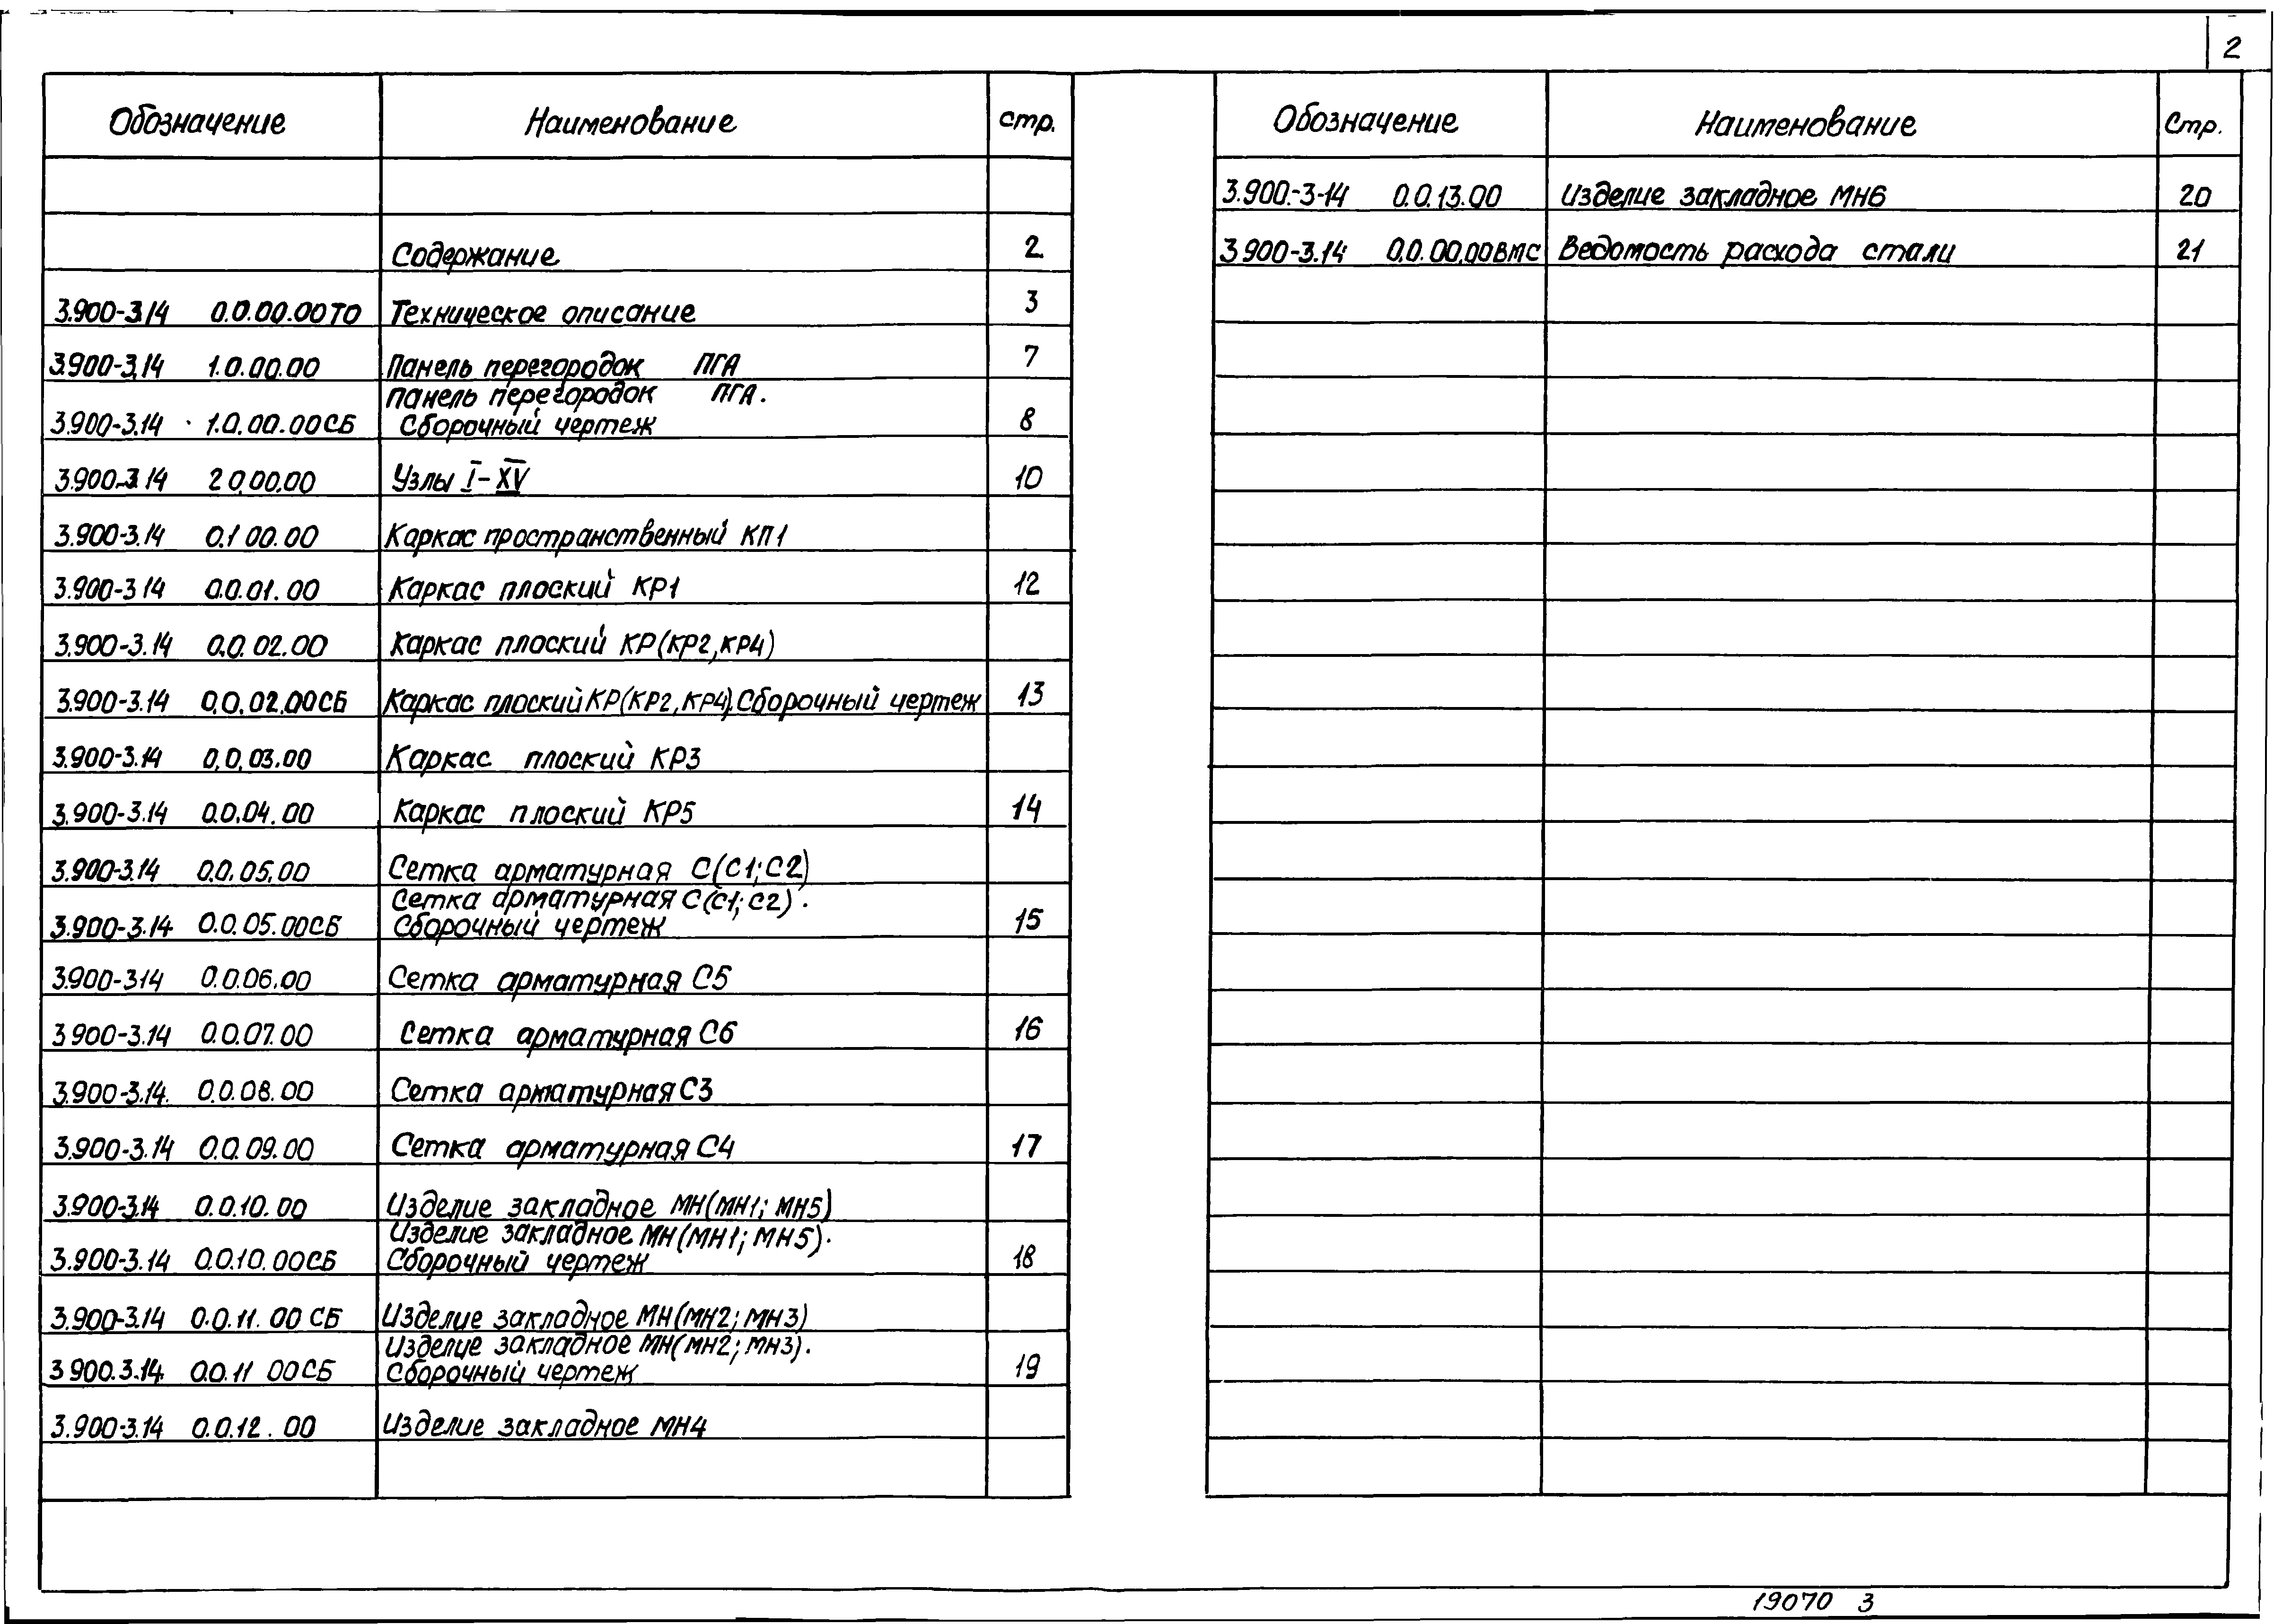 2
Обозначение Наименование стр.
Содержание 2
3.900-3.14 0.0.00.00ТО Техническое описание 3
3.900-3.14 1.0.00.00 Панель перегородок ПГА 7
панель перегородок ПГА.
3.900-3.14 1.0.00.00СБ Сборочный чертеж 8
3.900-3.14 2 0.00.00 Узлы I-XV 10
3.900-3.14 0.1 00.00 Каркас пространственный КП1
3.900-3 14 0.0.01.00 Каркас плоский КР1 12
3.900-3.14 0.0.02.00 Каркас плоский КР(КР2,КР4)
3.900-3.14 0.0.02.00СБ Каркас плоский КР(КР2,КР4).Сборочный чертеж 13
3.900-3.14 0.0.03.00 Каркас плоский КР3
3.900-3.14 0.0.04.00 Каркас плоский КР5 14
3.900-3.14 0.0.05.00 Сетка арматурная С(С1;С2)
Сетка арматурная С(С1;С2).
3.900-3.14 0.0.05.00СБ Сборочный чертеж 15
3.900-314 0.0.06.00 Сетка арматурная С5
3 900-3.14 0.0.07.00 Сетка арматурная С6 16
3.900-3.14. 0.0.08.00 Сетка арматурная С3
3.900-3.14 0.0.09.00 Сетка арматурная С4 17
3.900-3.14 0.0.10.00 Изделие закладное МН(МН1; МН5)
Изделие закладное МН(МН1; МН5).
3.900-3.14 0.0.10.00СБ Сборочный чертеж 18
3.900-3.14 0.0.11.00 СБ Изделие закладное МН(МН2; МН3)
Изделие закладное МН(МН2; МН3).
3 900.3.14. 0.0.11 00СБ Сборочный чертеж 19
3.900-3.14 0.0.12.00 Изделие закладное МН4
Обозначение Наименование Стр.
3.900.-3-14 0.0.13.00 Изделие закладное МН6 20
3.900-3.14 0.0.00.00ВМС Ведомость расхода стали 21
19070 3